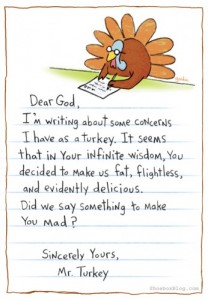 Dear God,
I'm writing about some concerns
I have as a turkey. It seems
that in Your infinite wisdom, You
decided to make us fat, flightless,
and evidently delicious.
Did we say something to make
You mad?
Sincerely Yours,
Mr. Turkey